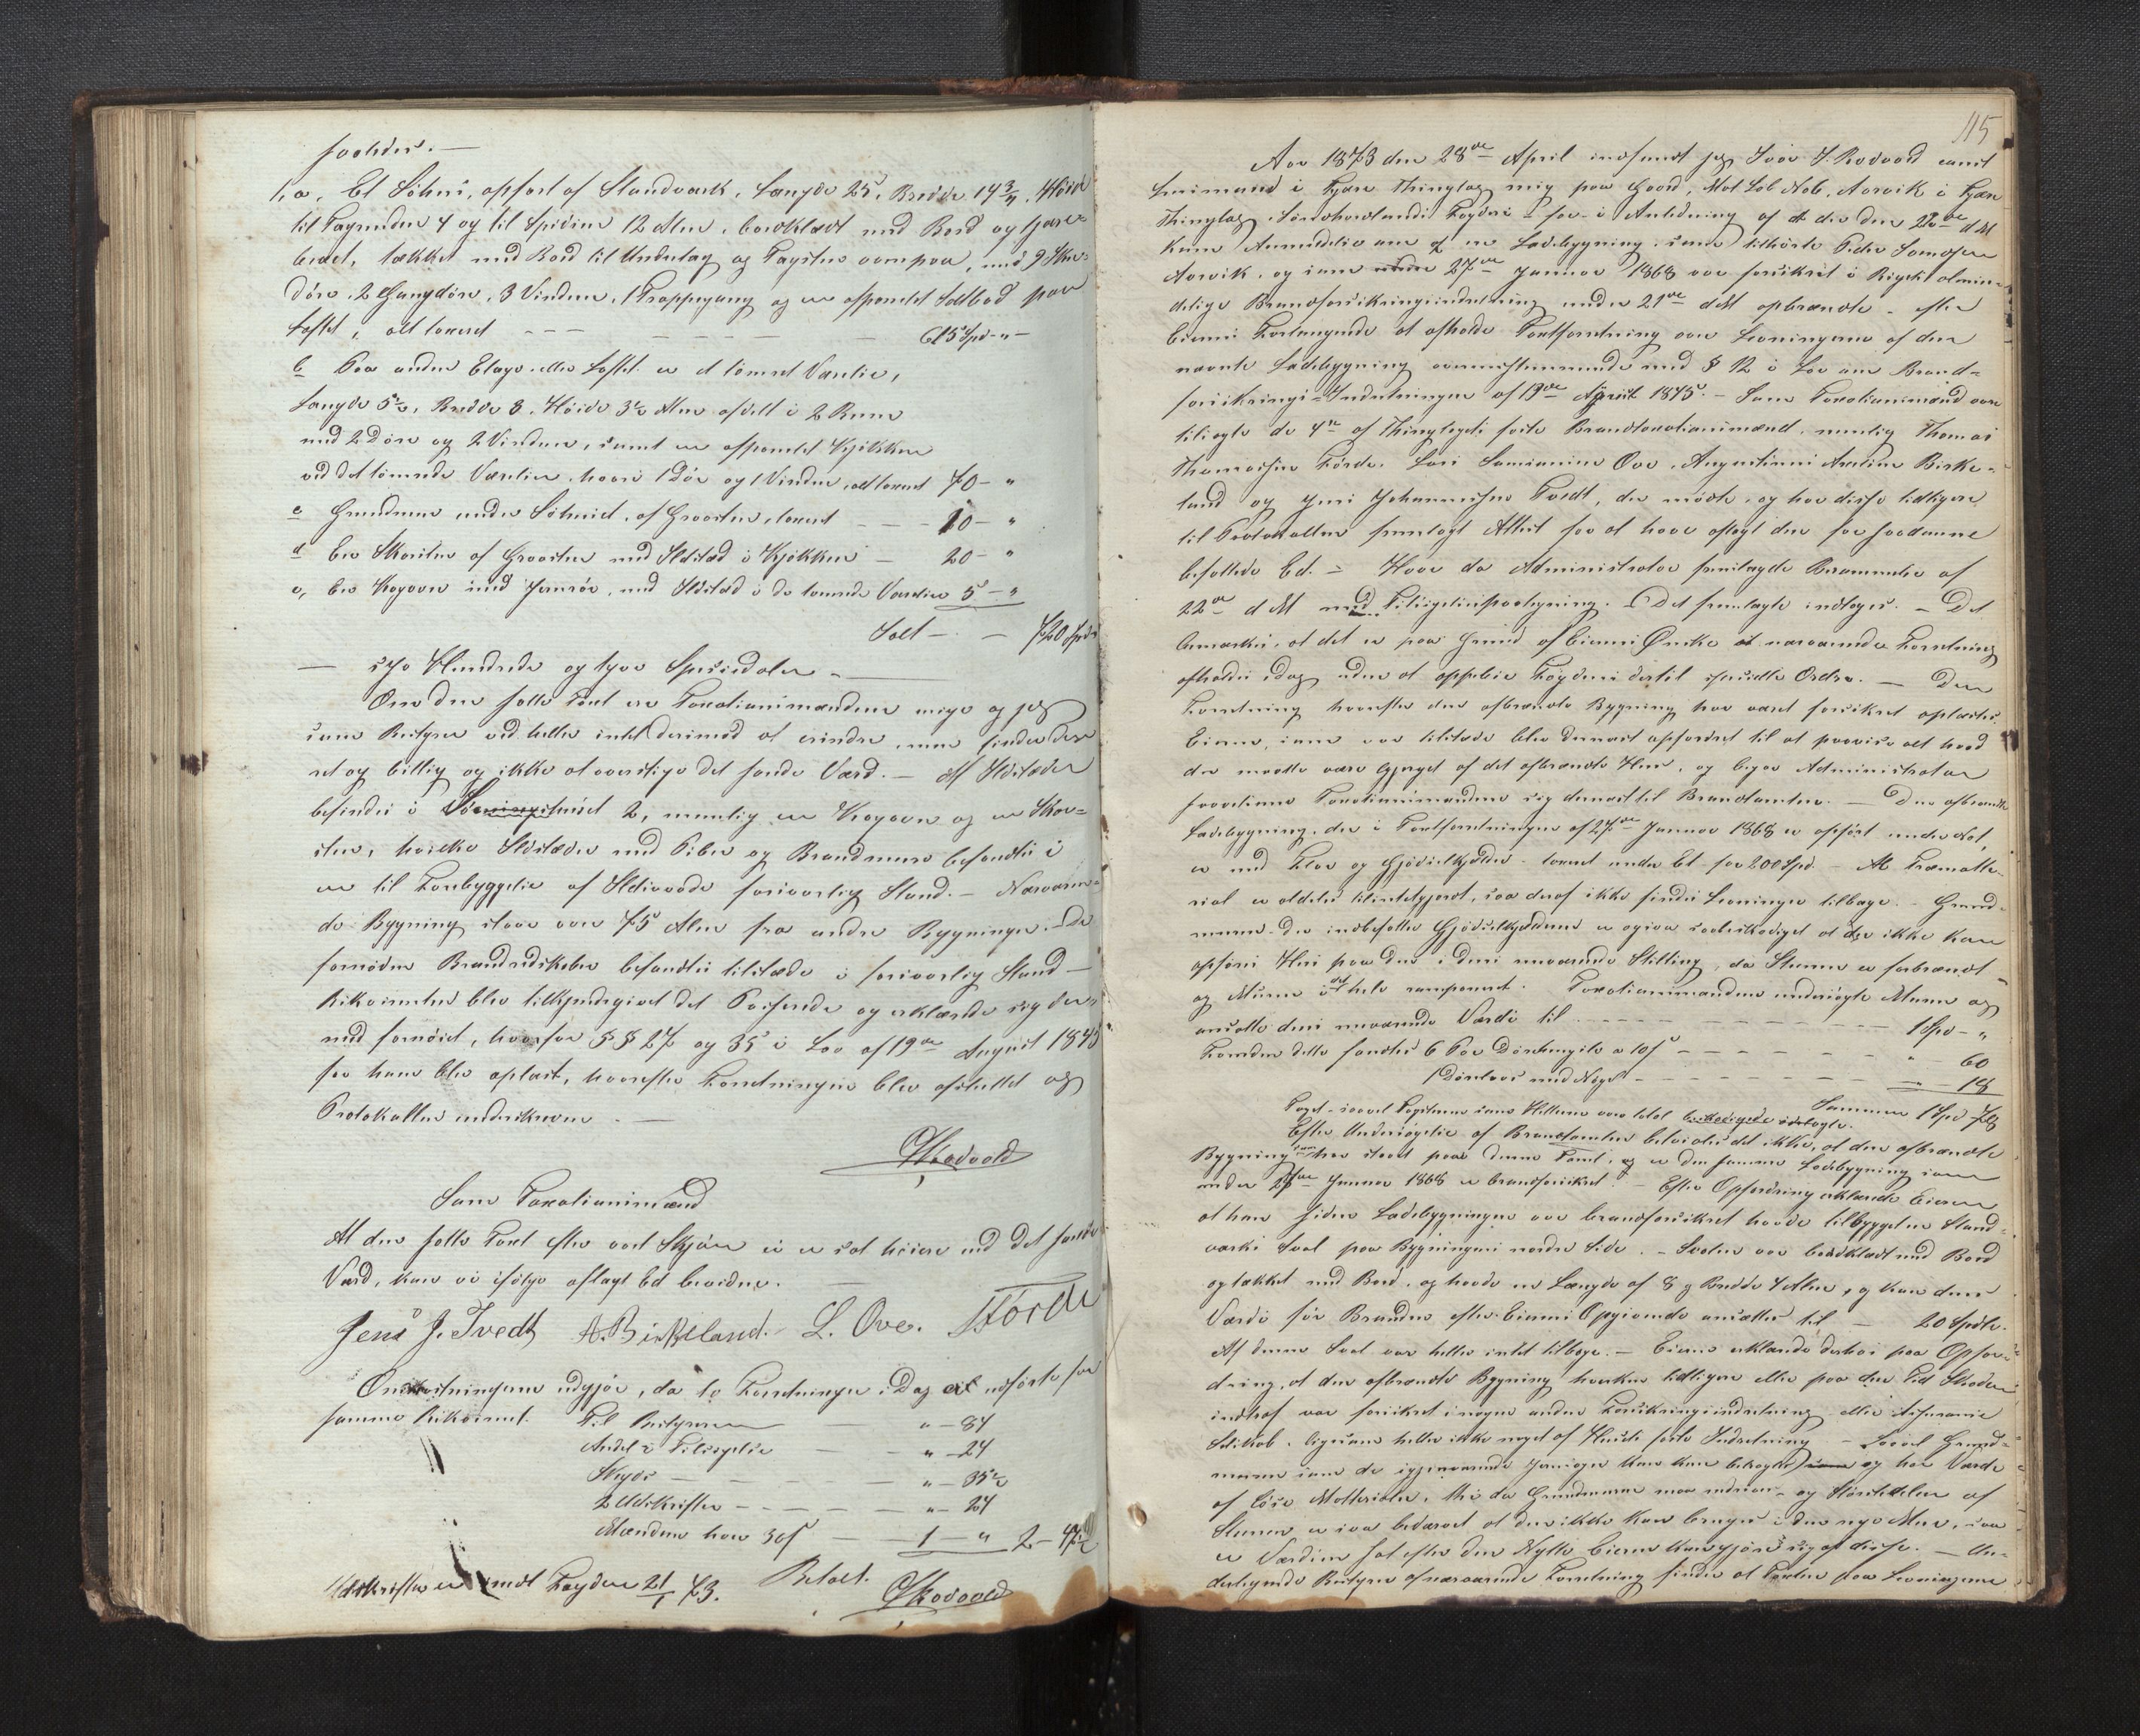 saaledes. —
1, a, Et Söhuus, opfört af Standværk, Længde 25, Bredde 14 3/4, Höide
til Tagrenden 4 og til Spidsen 12 Alen, bordklædt med Bord og
tækket med Bord til Underlag og Tagsteen ovenpaa, med 9
döre, 2 Gangdöre, 3 Vinduer, 1 Trappegang og en afpanelet paa
Loftet, alt taxeret — — — 615 Spd - " -
b Paa anden Etage eller Loftet er et tömret Værelse,
Længde 5 1/2, Bredde 8, Höide 3 1/2 Alen afdelt i 2 Rum
med 2 Döre og 2 Vinduer, samt en afpanelet Kjökken
ved det tömrede Værelse, hvori 1 Dör og 1 Vindue, alt taxeret 70 - "
c Grundmur under Söhuset, af Graasteen, taxeret - - - 10 - "
d En Skorsten af Graasteen med Ildsted i Kjökken — 20 - "
e, En Kogeovn med Jernrör, med Ildsted i de tömrede Værelser 5 - "
Ialt — — 720 Spdr
— syv Hundrede og tyve Speciedaler —
Om den satte Taxt ere Taxationsmændene enige og jeg
som Bestyrer ved heller intet derimod at erindre, men finder den
ret og billig og ikke at overstige det sande Værd. — Af Ildsteder
befindes i huset 2, nemlig en Kogeovn og en Skor-
sten, hvilke Ildsteder med Piber og Brandmure befandtes i
en til Forebyggelse af Ildsvaade forsvarlig Stand. — Nærværen-
de Bygning staar over 75 Alen fra andre Bygninger. De
fornödne Brandredskaber befandtes tilstede i forsvarlig Stand —
Rekvirenten blev tilkjendegivet det Passerede og erklærede sig der-
med fornöiet, hvorfor §§ 27 og 35 i Lov af 19de August 1845
for ham blev oplæst, hvorefter Forretningen blev afsluttet og
Protokollen underskreven. —
Rodvold
Som Taxationsmænd
At den satte Taxt efter vort Skjön ei er sat höiere end det sande
Værd, kan vi ifölge aflagt Ed bevidne. —
Jens J. Tvedt A. Birkeland. L. Ove. Förde
Omkostningerne udgjör, da to Forretninger i Dag er udförte for
samme Rekvirent. Til Bestyreren " - 84
Andel i Tilsigelse — - " - 24
Skyds — — " - 35 1/2
2 Udskrifter - - — — " - 24
Mændene hver 30 s — 1 - " 2 - 47 1/2
Udskriften er sendt Fogden 21/1 73. Betalt. Rodvold
115
Aar 1873 den 28de April indfandt jeg Iver J. Rodvold samt
Lensmand i Fjære Thinglag mig paa Gaard, Mat Löb No , Aarvik i Fjære
Thinglag, Söndhordlands Fogderi — for i Anledning af den 22de ds
Anmeldelse om at en Ladebygning, som tilhörte Peder
Aarvik, og som under 27de Januar 1868 var forsikret i Rigets almin-
delige Brandforsikringsindretning under 21de ds opbrændte — efter
Eierens Forlangende at afholde Taxtforretning over Levningerne af den
nævnte Ladebygning overensstemmende med § 12 i Lov om Brand-
forsikrings-Indretningen af 19de August 1845. — Som Taxationsmænd vare
tilsagte de 4re af Thinglagets faste Brandtaxationsmænd, nemlig Thomas
Thomassen Förde, Lars Ove, Augustinus Birke-
land og Jens Johannessen Tvedt, der mödte, og har disse tidligere
til Protokollen fremlagt Attest for at have aflagt den for saadanne
befalede Ed. — Hvor da Administrator fremlagde Berammelse af
22de ds med Tilsigelsespaategning. Det fremlagte indtages. — Det
bemærkes, at det er paa Grund af Eierens Önske at nærværende Forretning
afholdes idag uden at oppebie Fogdens dertil specielle Ordre. — Den
Forretning hvorefter den afbrændte Bygning har været forsikret oplæstes.
Eieren, som var tilstede blev dernæst opfordret til at paavise alt hvad
der maatte være bjerget af det afbrændte Huus, og begav Administrator
Taxationsmændene sig dernæst til Brandtomten. — Den afbrændte
Ladebygning, der i Taxtforretningen af 27de Januar 1868 er opfört under No 1,
er med Flor og Gjödselkjelder — taxeret under Et for 200 Spd. — Alt Træmate-
rial er aldeles tilintetgjort, saa deraf ikke findes Levninger tilbage. — Grund-
muren — den indbefattede Gjödselkjelderen er ogsaa saa beskadiget at der ikke kan
opföres Huus paa den i dens nuværende Stilling, da Stenen er forbrændt
og Muren i det hele ramponeret. Taxationsmændene undersögte Muren og
ansatte dens nuværende Værdi til - - - 1 Spd - "
Foruden dette fandtes 6 Par Dörhængsler a 10 s - - - " 60
1 Dörlaas med Nögel - - - " - 18
Summen 1 Spd 78
Taget — saavel Tagstenen som Hellerne vare total ödelagte.
Efter Undersögelse af Brandtomten betvivles det ikke, at den afbrændte
Bygning har staaet paa denne Tomt, og er den samme Ladebygning som
under 27de Januar 1868 er brandforsikret. — Efter Opfordring erklærede Eieren
at han siden Ladebygningen var brandforsikret havde tilbygget en Stand-
værks Sval paa Bygningens nordre Side. — Svalen var bordklædt med Bord
og tækket med Bord, og havde en Længde af 8 og Bredde 4 Alen, og kan dens
Værdi för Branden efter Eierens Opgivende ansættes til — 20 Spdlr.
Af denne Sval var heller intet tilbage. — Eieren erklærede derhos paa Opfor-
dring, at den afbrændte Bygning hverken tidligere eller paa den Tid Skaden
indtraf var forsikret i nogen anden Forsikringsindretning eller Assurance
Selskab, ligesom heller ikke noget af Husets faste Indretning. — Saavel Grund-
muren som de igjenværende Jernsager kan kun betragtes og har Værdi
af löse Materialier, thi da Grundmuren maa nedrives — og Störstedelen af
Stenen er saa bedærvet at den ikke kan bruges i den nye Muur, saa
er Værdien sat efter den Nytte Eieren kan gjöre sig af disse. — Un-
dertegnede Bestyrer af nærværende Forretning finder at Taxten paa Levningerne